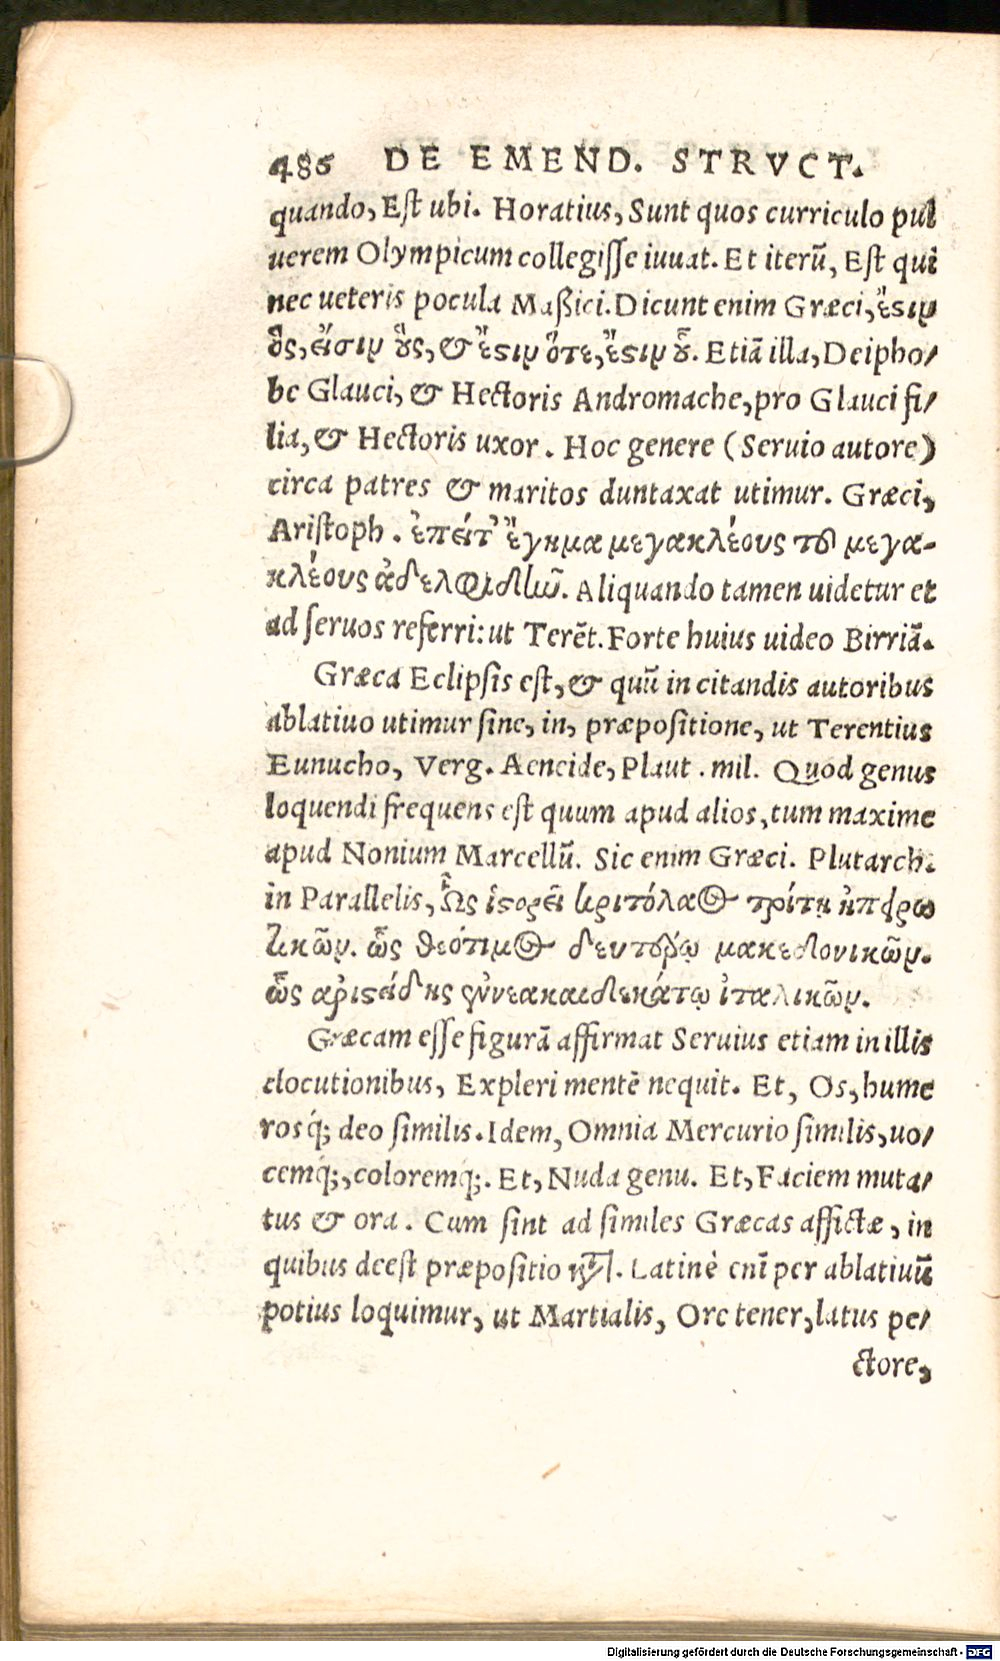 486 DE EMEND. STRVCT.
quando, Eſt ubi. Horatius, Sunt quos curriculo pul
uerem Olympicum collegiſſe iuuat. Et iterū, Eſt qui
nec ueteris pocula Maßici. Dicunt enim Græci, ἔϛιν
ὃς, εἴσιν οὓς, & ἔϛιν ὅτε, ἔϛιν οὗ. Etiā illa, Deipho/
be Glauci, & Hectoris Andromache, pro Glauci fi/
lia, & Hectoris uxor. Hoc genere (Seruio autore)
circa patres & maritos duntaxat utimur. Græci,
Ariſtoph. ἐπείτ' ἔγημα μεγακλέους τοῦ μεγα-
κλέους ἀδελφιδῶν. Aliquando tamen uidetur et
ad ſeruos referri: ut Terēt. Forte huius uideo Birriā.
Græca Eclipſis eſt, & quū in citandis autoribus
ablatiuo utimur ſine, in, præpoſitione, ut Terentius
Eunucho, Verg. Aeneide, Plaut. mil. Quod genus
loquendi frequens eſt quum apud alios, tum maxime
apud Nonium Marcellū. Sic enim Græci. Plutarch.
in Parallelis, Ὣς ἱϛορεῖ κριτόλαος τρίτη ἠπειρω
τικῶν. ὥς θεότιμος δευτέρῳ μακεδονικῶν.
ὥς ἀριϛείδης ἐννεακαιδεκάτῳ ἰταλικῶν.
Græcam eſſe figurā affirmat Seruius etiam in illis
elocutionibus, Expleri mentē nequit. Et, Os, hume
rosq́; deo ſimilis. Idem, Omnia Mercurio ſimilis, uo/
cemq́;, coloremq́;. Et, Nuda genu. Et, Faciem muta/
tus & ora. Cum ſint ad ſimiles Græcas affictæ, in
quibus deeſt præpoſitio κατὰ. Latinè enī per ablatiuū
potius loquimur, ut Martialis, Ore tener, latus pe/
ctore,
Digitalisierung gefördert durch die Deutsche Forschungsgemeinschaft - DFG